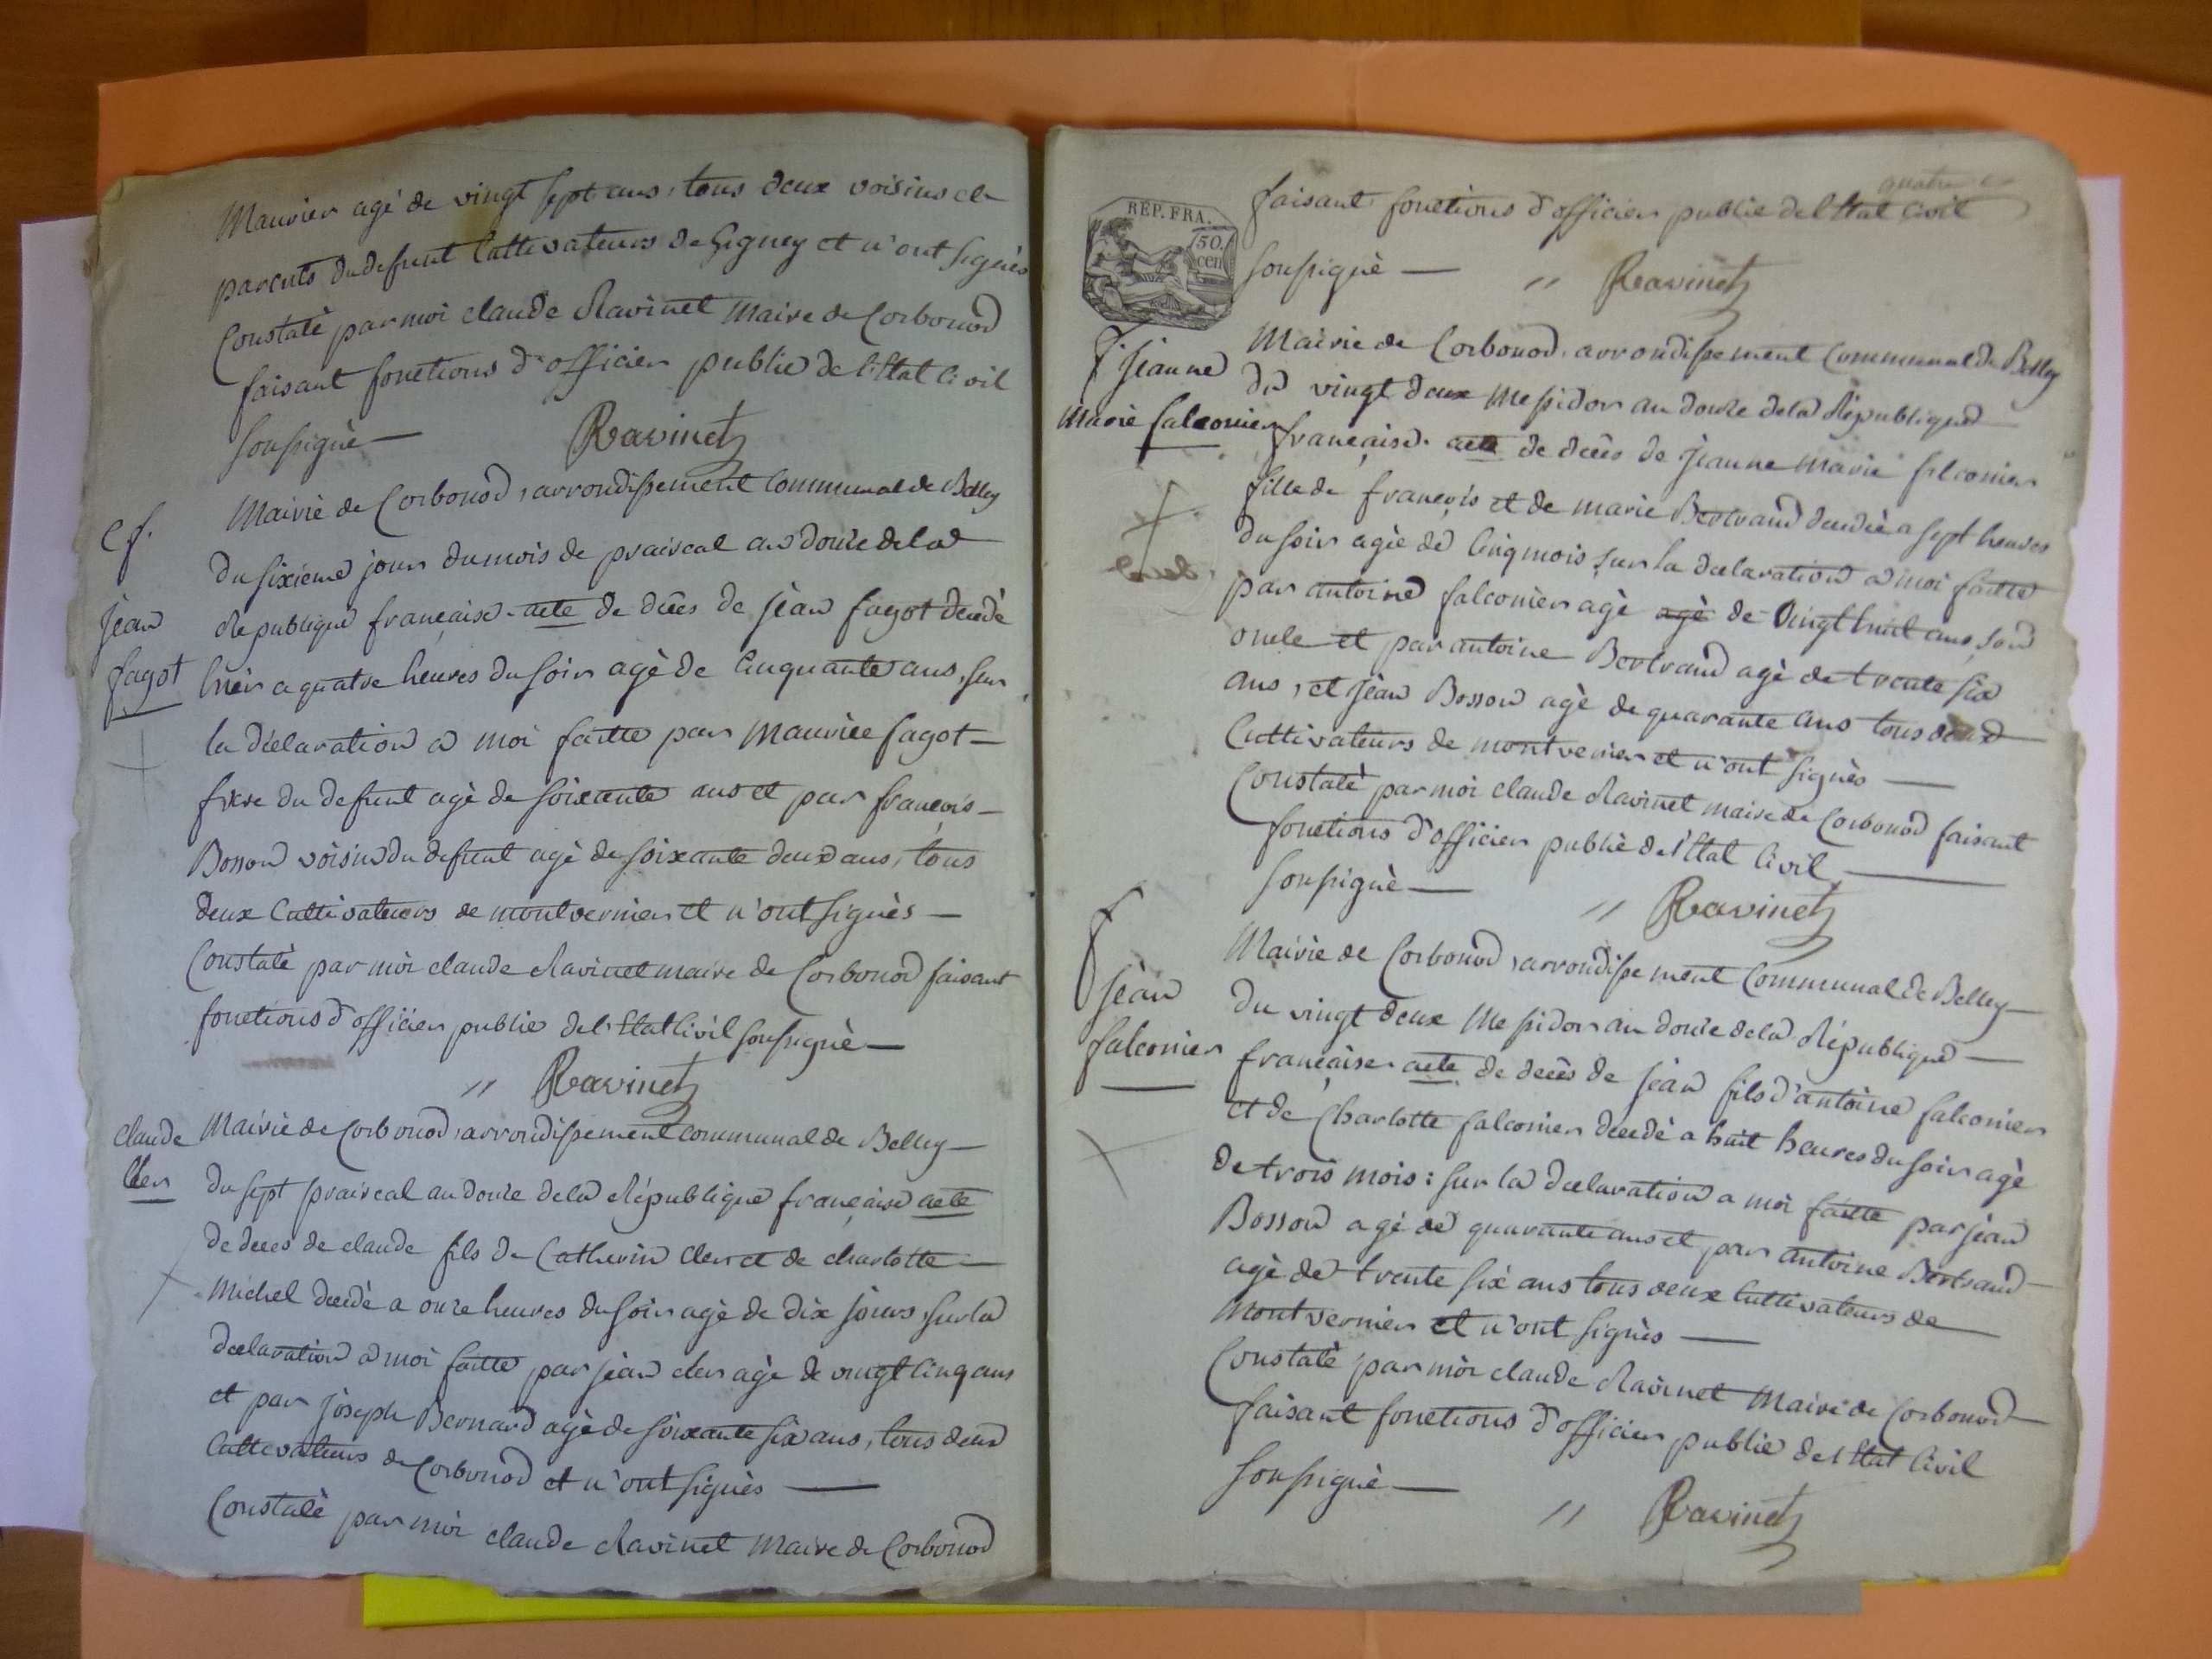 Mauvier agé de vingt sept ans, tous deux voisins et
parents du defunt Cultivateurs de Gigney et n'ont signés
Constatè par moi claude Ravinet Maire de Corbonod
faisant fonctions d'officier public de l'Etat Civil
soussignè — Ravinet
c f.
jean
fagot
Mairie de Corbonod, arrondissement Communal de Belley
du sixieme jour du mois de praireal an douze de la
Republique française. acte de dècès de jean fagot decedè
hièr a quatre heures du soir agè de Cinquante ans, sur
la déclaration a moi faitte par Maurice fagot —
frere du defunt agè de soixante ans et par françois —
Bosson voisin du defunt agè de soixante deux ans, tous
deux Cultivateurs de montvernier et n'ont signès —
Constatè par moi claude Ravinet maire de Corbonod faisant
fonctions d'officier public de l'Etat Civil soussignè —
" Ravinet
claude
Cler
Mairie de Corbonod, arrondissement communal de Belley —
du sept praireal an douze de la République française acte
de deces de claude fils de Catherin cler et de charlotte —
Michel decedè a onze heures du soir agè de dix jours, sur la
declaration a moi faitte par jean cler agè de vingt Cinq ans
et par joseph Bernard agè de soixante six ans, tous deux
Cultivateurs de Corbonod et n'ont signès —
Constatè par moi claude Ravinet Maire de Corbonod
quatre
REP. FRA.
50.
cen
faisant fonctions d'officier public de l'Etat Civil
soussignè — " Ravinet
f. jeanne
Marie falconier
Mairie de Corbonod, arrondissement Communal de Belley
du vingt deux Messidor an douze de la République
française. acte de décès de jeanne marie falconier
fille de françois et de marie Bertrand decedèe a sept heures
du soir agèe de Cinq mois sur la declaration a moi faitte
par antoine falconier agè agè de Vingt huit ans, son
oncle et par antoine Bertrand agè de trente six
ans, et jean Bosson agè de quarante ans tous deux
Cultivateurs de montvernier et n'ont signès —
Constatè par moi claude Ravinet maire de Corbonod faisant
fonctions d'officier public de l'Etat Civil —
soussignè — " Ravinet
f
jean
falconier
Mairie de Corbonod, arrondissement Communal de Belley —
du vingt deux Messidor an douze de la République —
française acte de décès de jean fils d'antoine falconier
et de Charlotte falconier decedè a huit heures du soir agè
de trois mois : sur la declaration a moi faitte par jean
Bosson agè de quarante ans et par antoine Bertrand —
agè de trente six ans tous deux Cultivateurs de
Montvernier et n'ont signès —
Constatè par moi claude Ravinet Maire de Corbonod
faisant fonctions d'officier public de l'Etat Civil
soussignè — " Ravinet